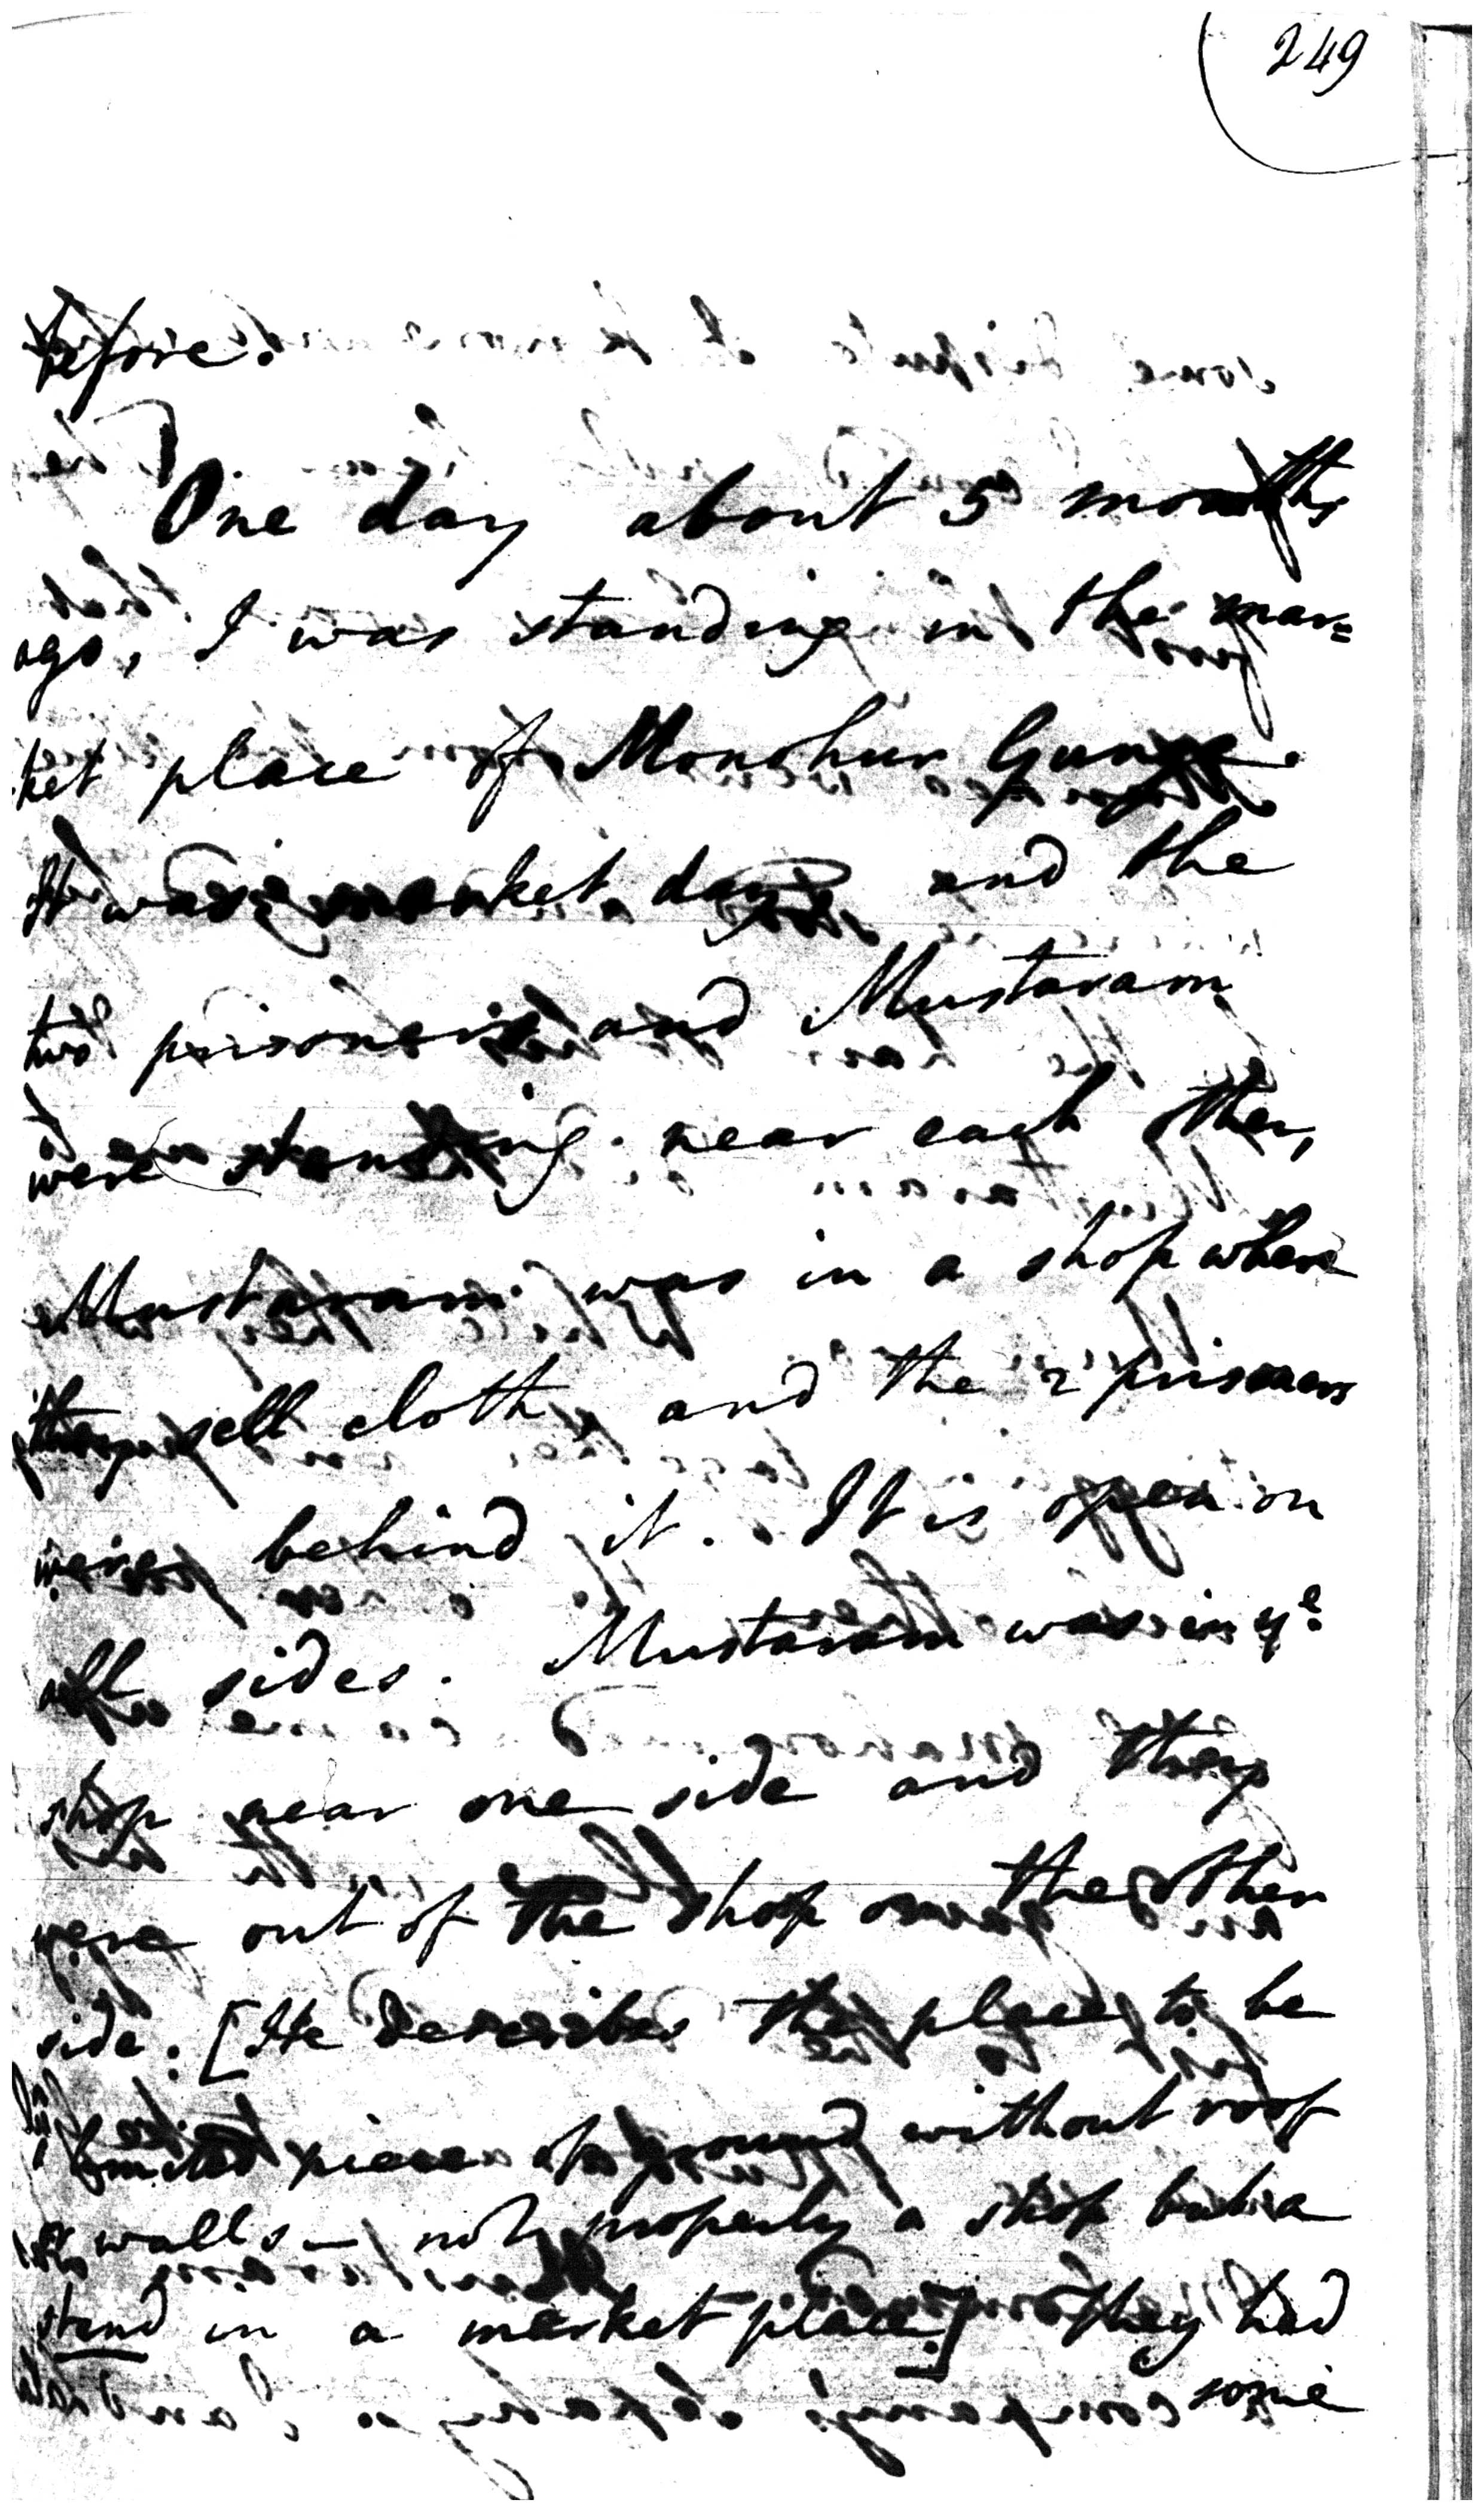 249
before.
One day about 5 months
ago, I was standing in the mar=
ket place of Monohur Gunge.
It was market day and the
two prisoners and Mustaram
were standing near each other,
Mustaram was in a shop where
they sell cloth, and the 2 prisoners
were behind it. It is open on
all sides. Mustaram was in ye
shop near one side and they
were out of the shop on the other
side. [He describes the place to be
limited piece of ground without roof
or walls - not properly a shop but a
stand in a market place.] They had
some